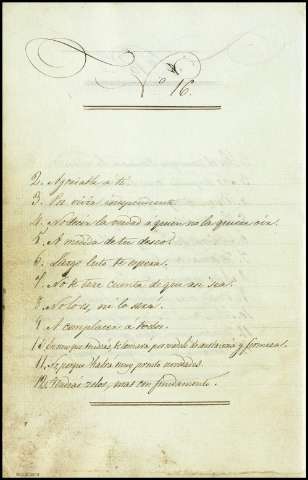 N.º 16.
2. Agradable a ti.
3. En vivir independiente.
4. No decir la verdad a quien no la quiere oir.
5. A medida de tu deseo.
6. Largo luto te espera.
7. No te dare cuenta de que asi sea.
8. No lo es, ni lo será.
9. A complacer a todos.
10. En que tendrás te tomara por modelo de constancia y firmeza.
11. No porque Habrá muy pronto novedades.
12. Tendras zelos, mas con fundamento.